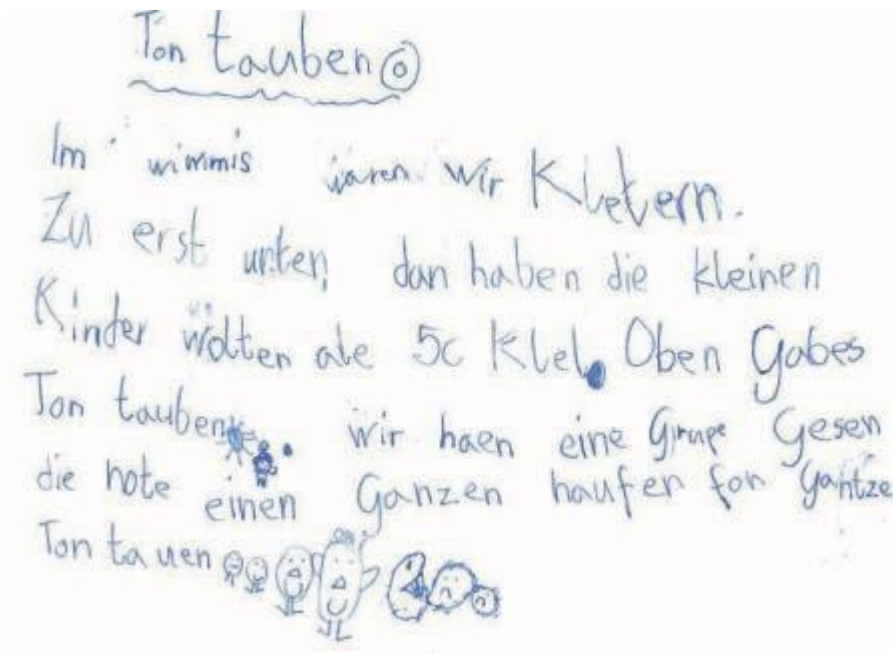 Ton tauben
Im wimmis waren wir Kletern.
Zu erst unten, dan haben die kleinen
Kinder wolten ale 5c Oben Gabes
Ton tauben wir haen eine Grupe Gesen
die hote einen Ganzen haufen fon gantze
Ton tauen